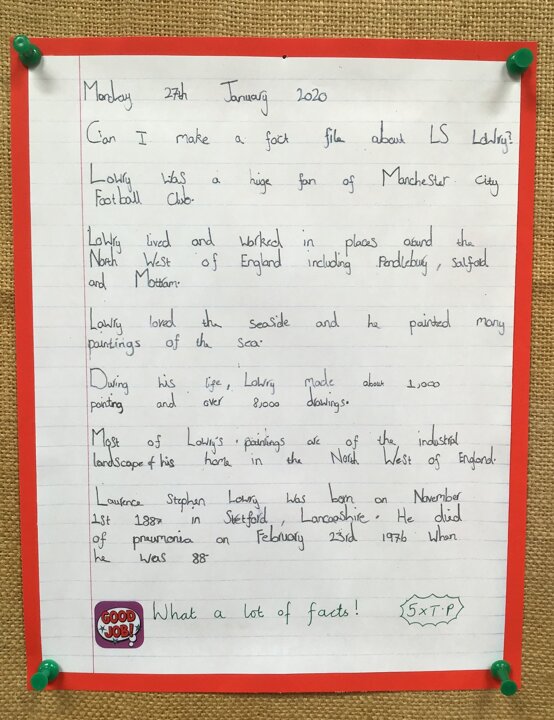 Monday 27th January 2020
Can I make a fact file about LS Lowry?
Lowry was a huge fan of Manchester city
Football Club.
Lowry lived and worked in places around the
North West of England including Pendlebury, Salford
and Mottram.
Lowry loved the seaside and he painted many
paintings of the sea.
During his life, Lowry made about 1,000
painting and over 8,000 drawings.
Most of Lowry's paintings are of the industrial
landscape of his home in the North West of England.
Laurence Stephen Lowry was born on November
1st 1887 in Stretford, Lancashire. He died
of pneumonia on February 23rd 1976 when
he was 88
GOOD JOB!
What a lot of facts! 5xT.P